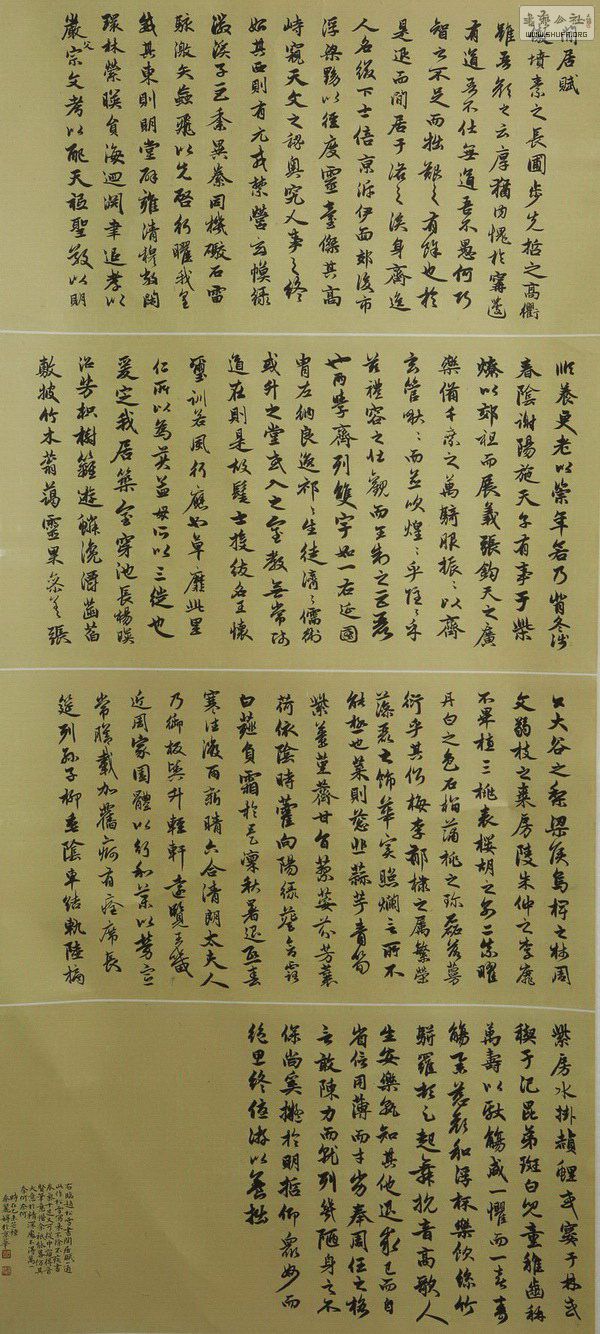 閒居賦
傲墳素之長圃步先哲之高衢
雖吾顏之云厚猶內愧於甯蘧
有道吾不仕無道吾不愚何巧
智之不足而拙艱之有餘也於
是退而閒居于洛之涘身齊逸
人名綴下士倍京泝伊面郊後市
浮梁黝以徑度靈臺傑其高
峙窺天文之祕奧究人事之終
始其西則有元戎禁營玄幙綠
徽溪子巨黍異絭同機礮石雷
駭激矢蝱飛以先啓行曜我皇
威其東則明堂辟雍清穆敞閑
環林縈映負海迴淵聿追孝以
嚴父宗文考以配天祗聖敬以明
順養更老以崇年若乃背冬涉
春陰謝陽施天子有事于柴
燎以郊祖而展義張鈞天之廣
樂備千乘之萬騎服振振以齊
玄管啾啾而並吹煌煌乎隱隱乎
茲禮容之壯觀而王制之巨麗
也兩學齊列雙宇如一右延國
胄左納良逸祁祁生徒濟濟儒術
或升之堂或入之室教無常師
道在則是故髦士投紱名王懷
璽訓若風行應如草靡此里
仁所以為美孟母所以三徙也
爰定我居築室穿池長楊映
沼芳枳樹籬遊鱗瀺灂菡萏
敷披竹木蓊藹靈果參差張
公大谷之梨梁侯烏椑之柿周
文弱枝之棗房陵朱仲之李靡
不畢植三桃表櫻胡之別二柰曜
丹白之色石榴蒲桃之珍磊落蔓
衍乎其側梅李郁棣之屬繁榮
藻麗之飾華實照爛言所不
能極也菜則蔥韭蒜芋青筍
紫薑堇薺甘旨蓼荽芬芳蘘
荷依陰時藿向陽綠葵含露
白薤負霜於是凜秋暑退熙春
寒往微雨新晴六合清朗太夫人
乃御板輿升輕軒遠覽王畿
近周家園體以行和藥以勞宣
常膳載加舊痾有痊席長
筵列孫子柳垂陰車結軌陸摘
紫房水掛赬鯉或宴于林或
禊于汜昆弟斑白兒童稚齒稱
萬壽以獻觴咸一懼而一喜壽
觴舉慈顏和浮杯樂飲絲竹
駢羅頓足起舞抗音高歌人
生安樂孰知其他退求己而自
省信用薄而才劣奉周任之格
言敢陳力而就列幾陋身之不
保尚奚擬於明哲仰衆妙而
絕思終優游以養拙
右臨趙松雪書閒居賦一過
WWW.SHUFA.ORG